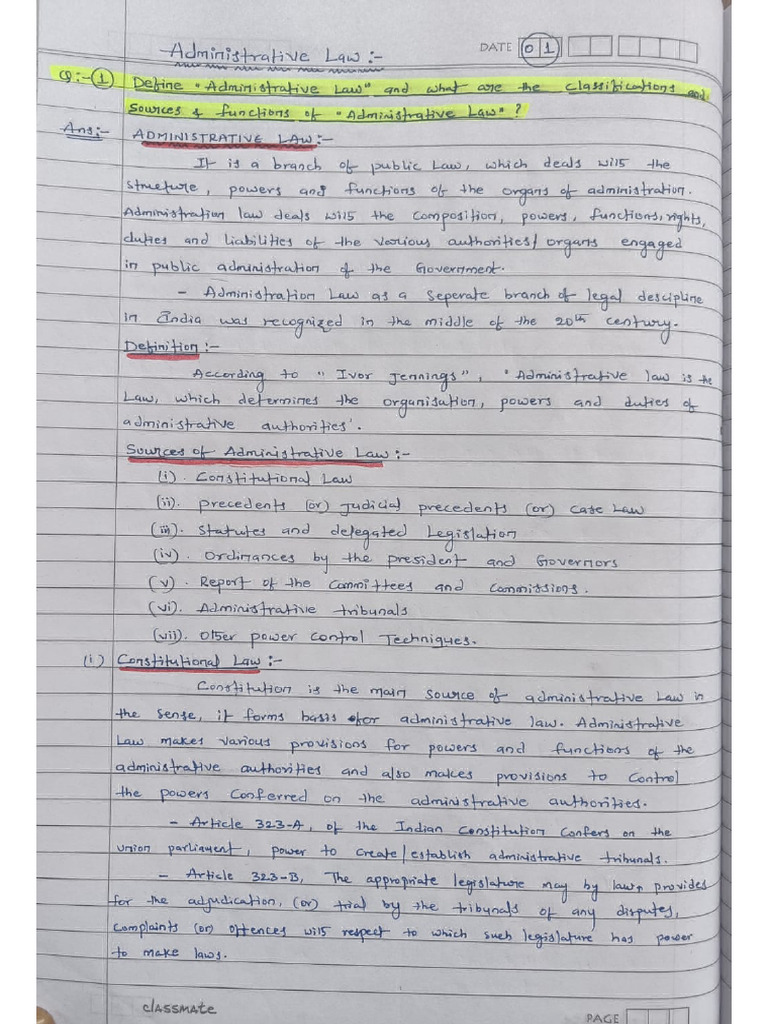 Administrative Law :-
DATE 01
Q:- 1 Define "Administrative Law" and what are the classifications and
Sources & functions of "Administrative Law" ?
Ans:- ADMINISTRATIVE LAW :-
It is a branch of public Law, which deals with the
structure, powers and functions of the organs of administration.
Administration law deals with the composition, powers, functions, rights,
duties and liabilities of the various authorities/organs engaged
in public administration of the Government.
- Administration Law as a seperate branch of legal descipline
in India was recognized in the middle of the 20th century.
Definition :-
According to "Ivor Jennings", 'Administrative law is the
Law, which determines the organisation, powers and duties of
administrative authorities'.
Sources of Administrative Law :-
(i). Constitutional Law
(ii). precedents (or) judicial precedents (or) case Law
(iii). Statutes and delegated Legislation
(iv). Ordinances by the president and Governors
(v). Report of the Committees and Commissions.
(vi). Administrative tribunals
(vii). Other power control Techniques.
(i) Constitutional Law :-
Constitution is the main source of administrative Law in
the sense, it forms basis for administrative law. Administrative
Law makes various provisions for powers and functions of the
administrative authorities and also makes provisions to control
the powers conferred on the administrative authorities.
- Article 323-A, of the Indian Constitution Confers on the
union parliament, power to create/establish administrative tribunals.
- Article 323-B, The appropriate legislature may by law, provides
for the adjudication, (or) trial by the tribunals of any disputes,
complaints (or) offences with respect to which such legislature has power
to make laws.
classmate
PAGE